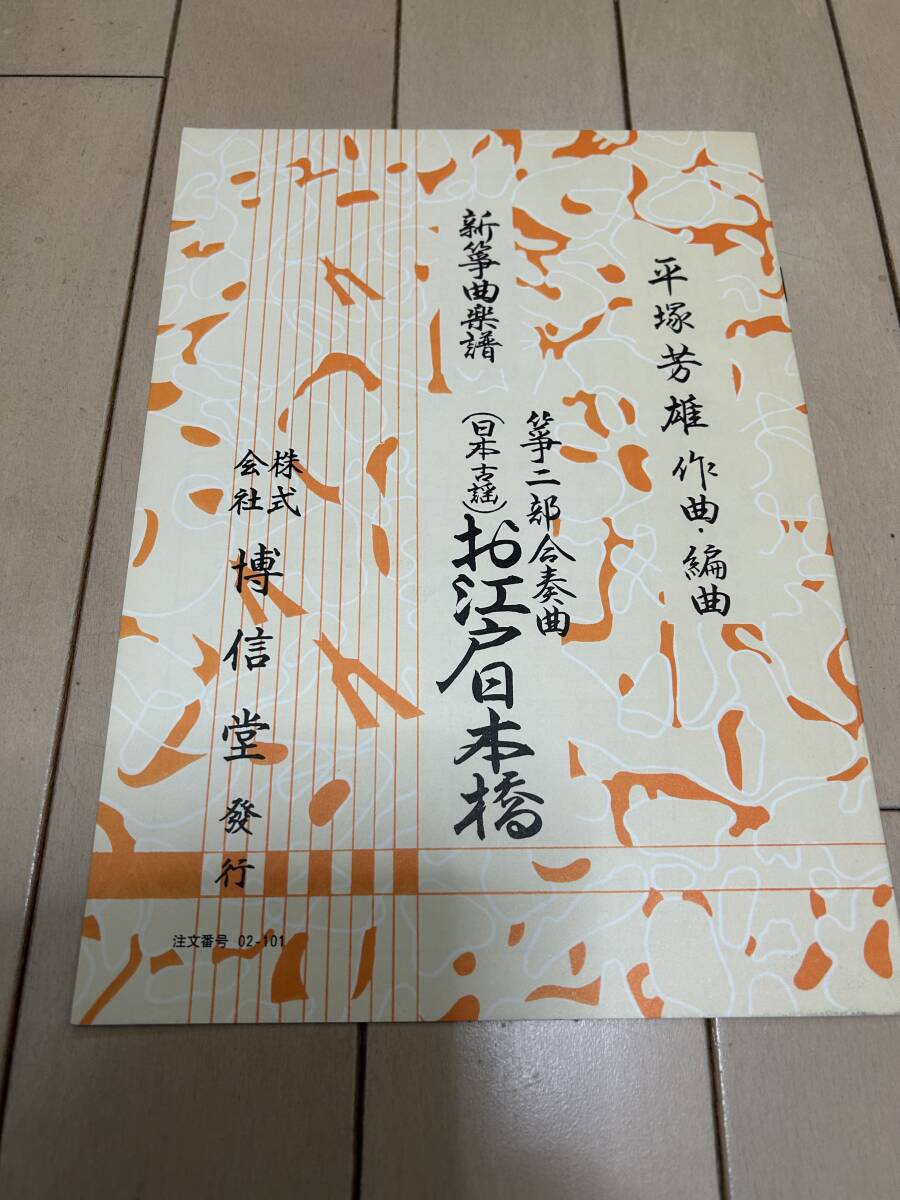 平塚芳雄作曲・編曲
新箏曲楽譜
箏二部合奏曲
(日本古謡)お江戸日本橋
株式会社博信堂發行
注文番号 02-101